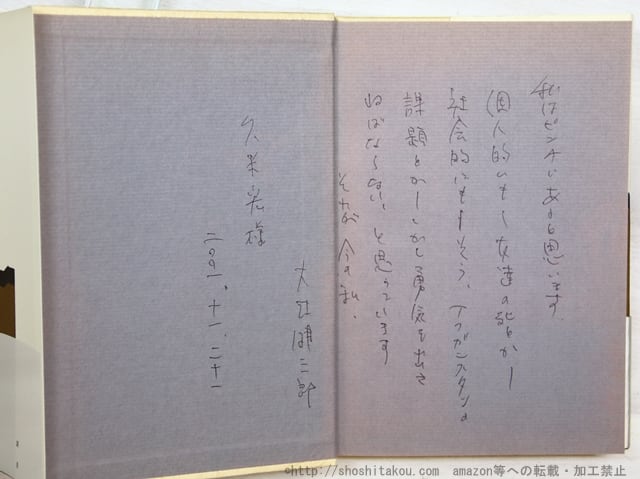 私はピンチにあると思います。
(個人的にも― 友達の死とか―
社会的にもそう、アフガンスタンの
課題とか―しかし勇気を出さ
ねばならない、と思っています
それが今の私、
大江健三郎
久米宏様
二〇〇一。十一、二十一
©http://shoshitakou.com amazon等への転載・加工禁止